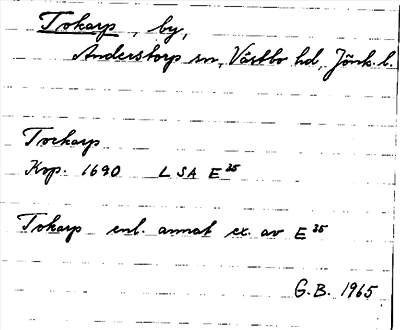 Tokarp, by,
Anderstorp sn, Västbo hd, Jönk. l.
Torkarp
Kop. 1690 LSA E 35
Tokarp enl. annat ex. av E 35
G.B. 1965